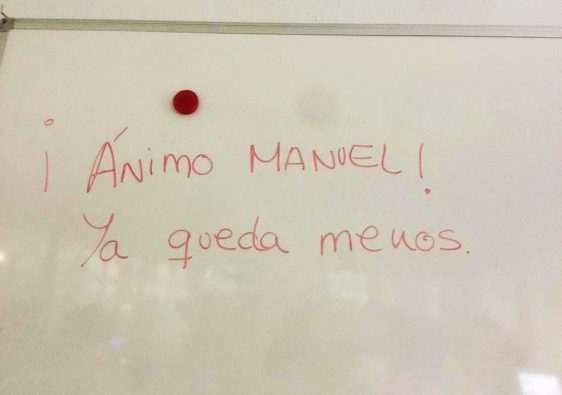 ¡ Ánimo MANUEL!
Ya queda menos.